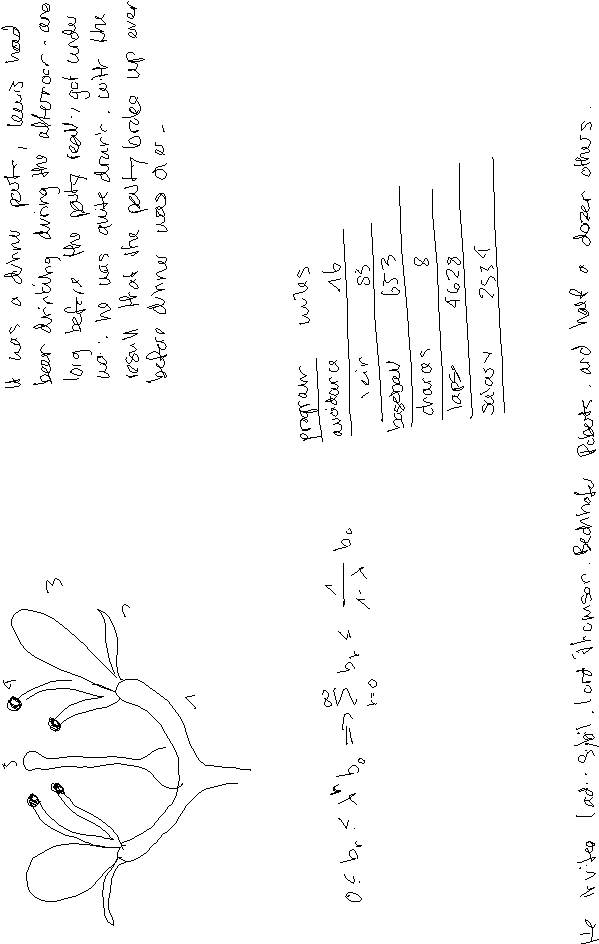 5 4 3
2
1
It was a dinner party, Lewis had
been drinking during the afternoon, and
long before the party really got under
way he was quite drunk, with the
result that the party broke up even
before dinner was over.
0 ≤ bₙ ≤ λⁿ b₀ ⇒ ∑_{n=0}^{∞} bₙ ≤ 1/(1-λ) b₀
program miles
avoidance 16
83
baseball 653
chances 8
lapse 4628
salary 2934
He invited Lady Sybil, Lord Thomson, Bechhofer Roberts, and half a dozen others.